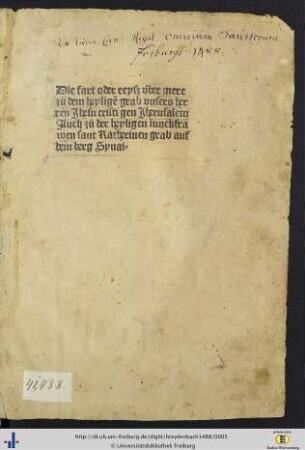 Ex libris Can: Regul omnium Sanctorum
Friburgi 1488.
Die fart oder reysz über mere
zů dem heyligē grab vnsers her
ren Jhesu cristi gen Jherusalem
Auch zů der heyligen iunckfra
wen sant Katherinen grab auf
dem berg Synai.
41,438.
http://dl.ub.uni-freiburg.de/diglit/breydenbach1488/0005
© Universitätsbibliothek Freiburg
Baden-Württemberg